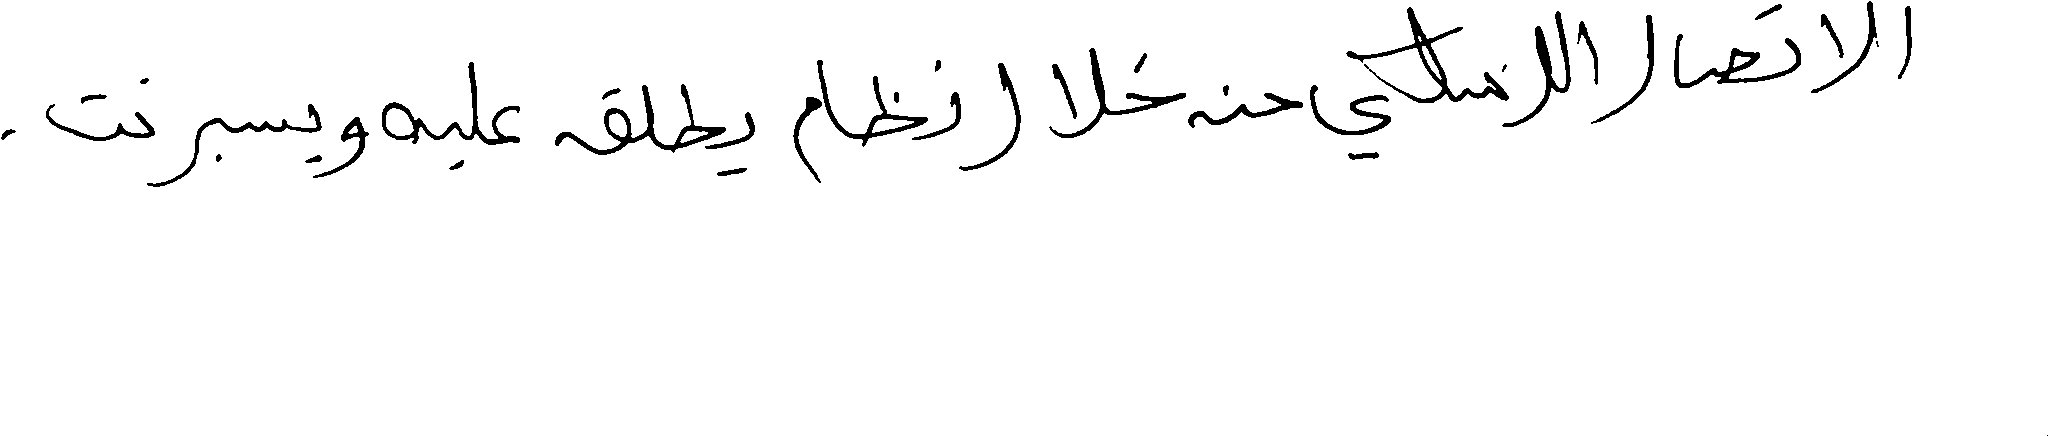 الاتصال اللاسلكي من خلال نظام يطلق عليه ويسبرنت.